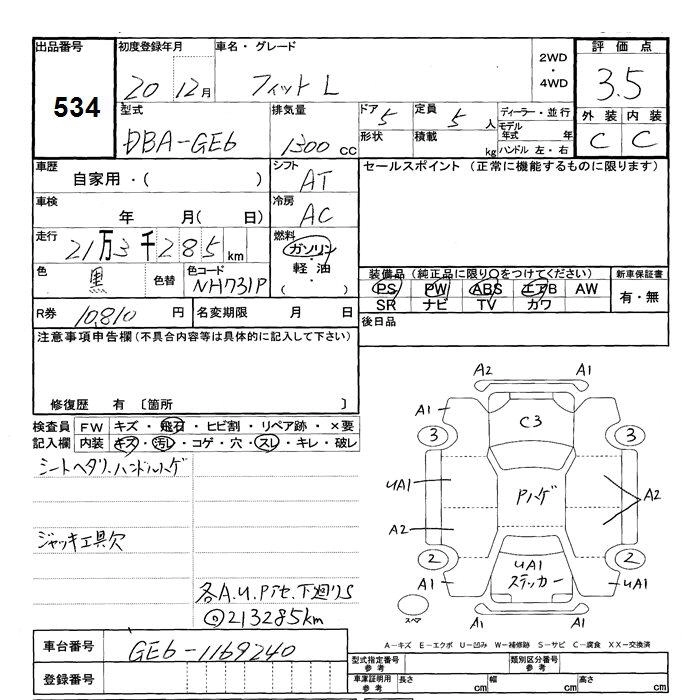 出品番号
534
初度登録年月
20 12月
車名・グレード
フィット L
2WD
・
4WD
評価点
3.5
型式
DBA-GE6
排気量
1300 cc
ドア 5
形状
定員 5 人
積載 kg
ディーラー・並行
モデル年式 年
ハンドル 左・右
外装 内装
C C
車歴
自家用・( )
シフト
AT
セールスポイント (正常に機能するものに限ります)
車検
年 月( 日)
冷房
AC
走行
21万3千285km
燃料
ガソリン
・
軽油
・
( )
色
黒
色替
色コード
NH731P
装備品(純正品に限り○をつけてください)
PS PW ABS エアB AW
SR ナビ TV カワ
新車保証書
有・無
R券 10,810 円
名変期限 月 日
後日品
注意事項申告欄(不具合内容等は具体的に記入して下さい)
修復歴 有 〔箇所 〕
検査員記入欄
FW キズ・飛石・ヒビ割・リペア跡・×要
内装 キズ・汚レ・コゲ・穴・スレ・キレ・破レ
シートヘタリ、ハンドルハゲ
ジャッキ工具欠
各A.U.Pﾊｹ.下廻りS
◎213285km
A2 A1
A1 A1
C3
3 3
UA1 Pハゲ A2
A2
2 2
UA1
ステッカー
A1 UA1
スペア
A1 A1
A-キズ E-エクボ U-凹み W-補修跡 S-サビ C-腐食 XX-交換済
車台番号 GE6-1169240
登録番号
型式指定番号 参考
類別区分番号 参考
車庫証明用 参考 長さ cm 幅 cm 高さ cm